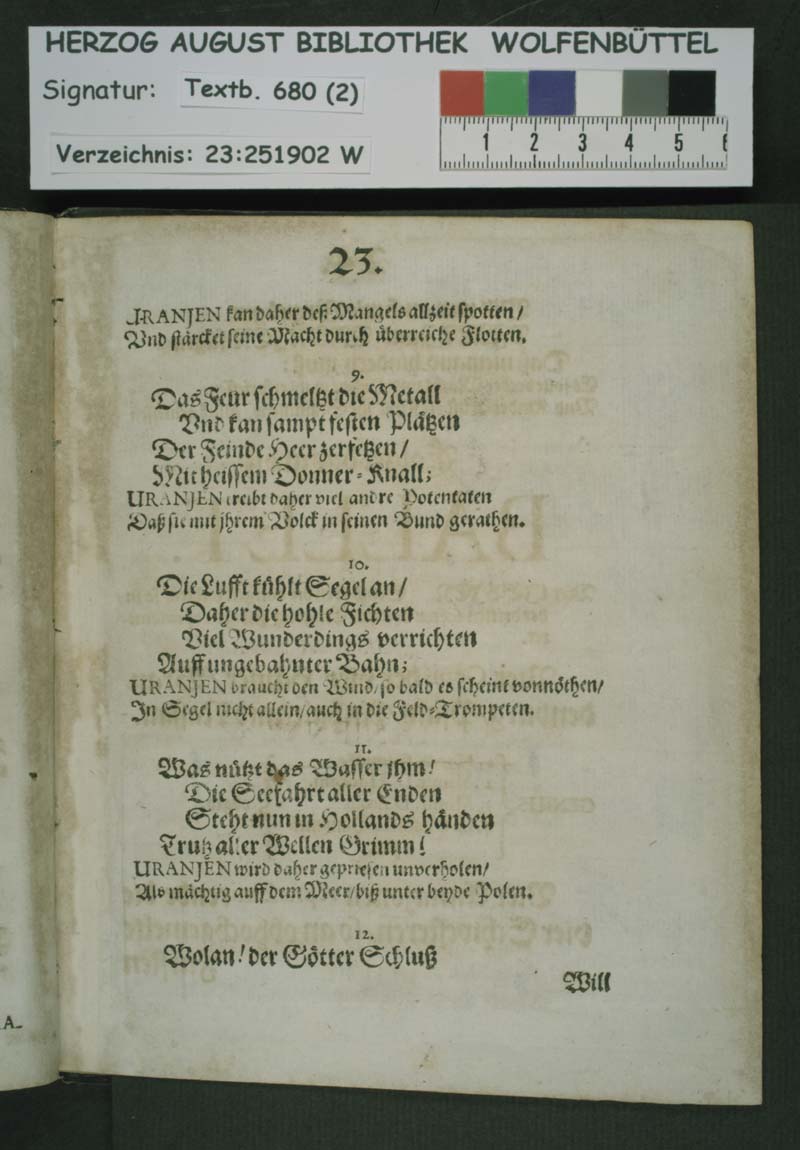 HERZOG AUGUST BIBLIOTHEK WOLFENBÜTTEL
Signatur: Textb. 680 (2)
Verzeichnis: 23:251902 W
1 2 3 4 5 6
23.
URANJEN kan daher deß Mangels allzeit spotten /
Vnd stärcket seine Macht durch überreiche Flotten.
9.
Das Feur schmeltzt die Metall
Vnd kan sampt festen Plätzen
Der Feinde Heer zerfetzen /
Mit heissem Donner-Knall;
URANJEN treibt daher viel andre Potentaten
Daß sie mit jhrem Volck in seinen Bund gerathen.
10.
Die Lufft kühlt Segel an /
Daher die hohle Fichten
Viel Wunderdings verrichten
Auff ungebahnter Bahn;
URANJEN braucht den Wind / so bald es scheint vonnöthen /
In Segel nicht allein / auch in die Feld-Trompeten.
11.
Was nützt das Wasser jhm!
Die Seefahrt aller Enden
Steht nun in Hollands händen
Trutz aller Wellen Grimm!
URANJEN wird daher gepriesen unverholen /
Als mächtig auff dem Meer / biß unter beyde Polen.
12.
Wolan! der Götter Schluß
Will
A-